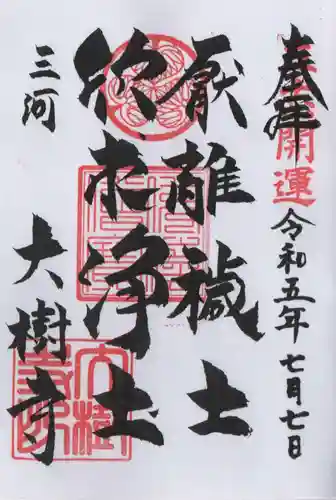 奉拝
開運
令和五年七月七日
厭離穢土
欣求浄土
三河
大樹寺
大樹寺印